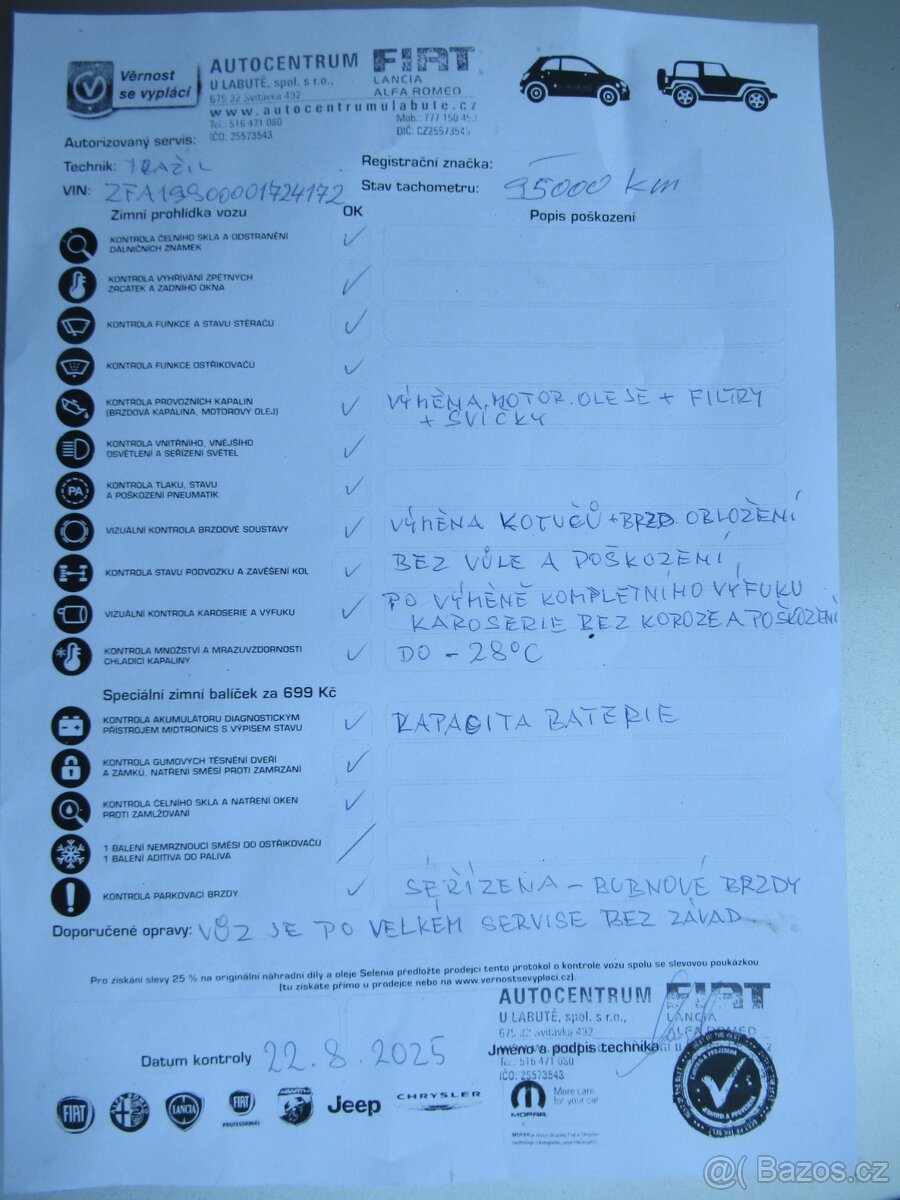 Věrnost
se vyplácí
AUTOCENTRUM FIAT
U LABUTĚ, spol. s r.o., LANCIA
675 32 Svitávka 492 ALFA ROMEO
www.autocentrumulabute.cz
Tel.: 516 471 080 Mob.: 777 150
IČO: 25573543 DIČ: CZ25573543
Autorizovaný servis:
Technik:
Registrační značka: —
VIN: ZFA19800001724172
Stav tachometru: 95000 km
Zimní prohlídka vozu OK Popis poškození
KONTROLA ČELNÍHO SKLA A ODSTRANĚNÍ
DÁLNIČNÍCH ZNÁMEK
KONTROLA VYHŘÍVÁNÍ ZPĚTNÝCH
ZRCÁTEK A ZADNÍHO OKNA
KONTROLA FUNKCE A STAVU STĚRAČŮ
KONTROLA FUNKCE OSTŘIKOVAČŮ
KONTROLA PROVOZNÍCH KAPALIN
(BRZDOVÁ KAPALINA, MOTOROVÝ OLEJ)
VÝMĚNA MOTOR. OLEJE + FILTRY
+ SVÍČKY
KONTROLA VNITŘNÍHO, VNĚJŠÍHO
OSVĚTLENÍ A SEŘÍZENÍ SVĚTEL
PA
KONTROLA TLAKU, STAVU
A POŠKOZENÍ PNEUMATIK
VIZUÁLNÍ KONTROLA BRZDOVÉ SOUSTAVY
VÝMĚNA KOTUČŮ + BRZD. OBLOŽENÍ
KONTROLA STAVU PODVOZKU A ZAVĚŠENÍ KOL
BEZ VŮLE A POŠKOZENÍ
VIZUÁLNÍ KONTROLA KAROSERIE A VÝFUKU
PO VÝMĚNĚ KOMPLETNÍHO VÝFUKU
KAROSERIE BEZ KOROZE A POŠKOZENÍ
KONTROLA MNOŽSTVÍ A MRAZUVZDORNOSTI
CHLADICÍ KAPALINY
DO -28°C
Speciální zimní balíček za 699 Kč
KONTROLA AKUMULÁTORU DIAGNOSTICKÝM
PŘÍSTROJEM MIDTRONICS S VÝPISEM STAVU
KAPACITA BATERIE
KONTROLA GUMOVÝCH TĚSNĚNÍ DVEŘÍ
A ZÁMKŮ, NATŘENÍ SMĚSÍ PROTI ZAMRZÁNÍ
KONTROLA ČELNÍHO SKLA A NATŘENÍ OKEN
PROTI ZAMLŽOVÁNÍ
1 BALENÍ NEMRZNOUCÍ SMĚSI DO OSTŘIKOVAČŮ
1 BALENÍ ADITIVA DO PALIVA
KONTROLA PARKOVACÍ BRZDY
SEŘÍZENA - BUBNOVÉ BRZDY
Doporučené opravy: VŮZ JE PO VELKÉM SERVISE BEZ ZÁVAD
Pro získání slevy 25 % na originální náhradní díly a oleje Selenia předložte prodejci tento protokol o kontrole vozu spolu se slevovou poukázkou
(tu získáte přímo u prodejce nebo na www.vernostsevyplaci.cz).
AUTOCENTRUM FIAT
U LABUTĚ, spol. s r.o., LANCIA
675 32 Svitávka 492 ALFA ROMEO
Datum kontroly 22.8.2025
Jméno a podpis technika:
Tel.: 516 471 080
IČO: 25573543
FIAT
LANCIA
FIAT
PROFESSIONAL
ABARTH
Jeep
CHRYSLER
MOPAR
More care
for your car
KONTROLA PROVEDENA
@( Bazos.cz